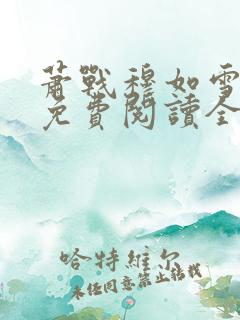 蕭戰穆如雪
免費閱讀全
哈特維尔
未经同意禁止转载